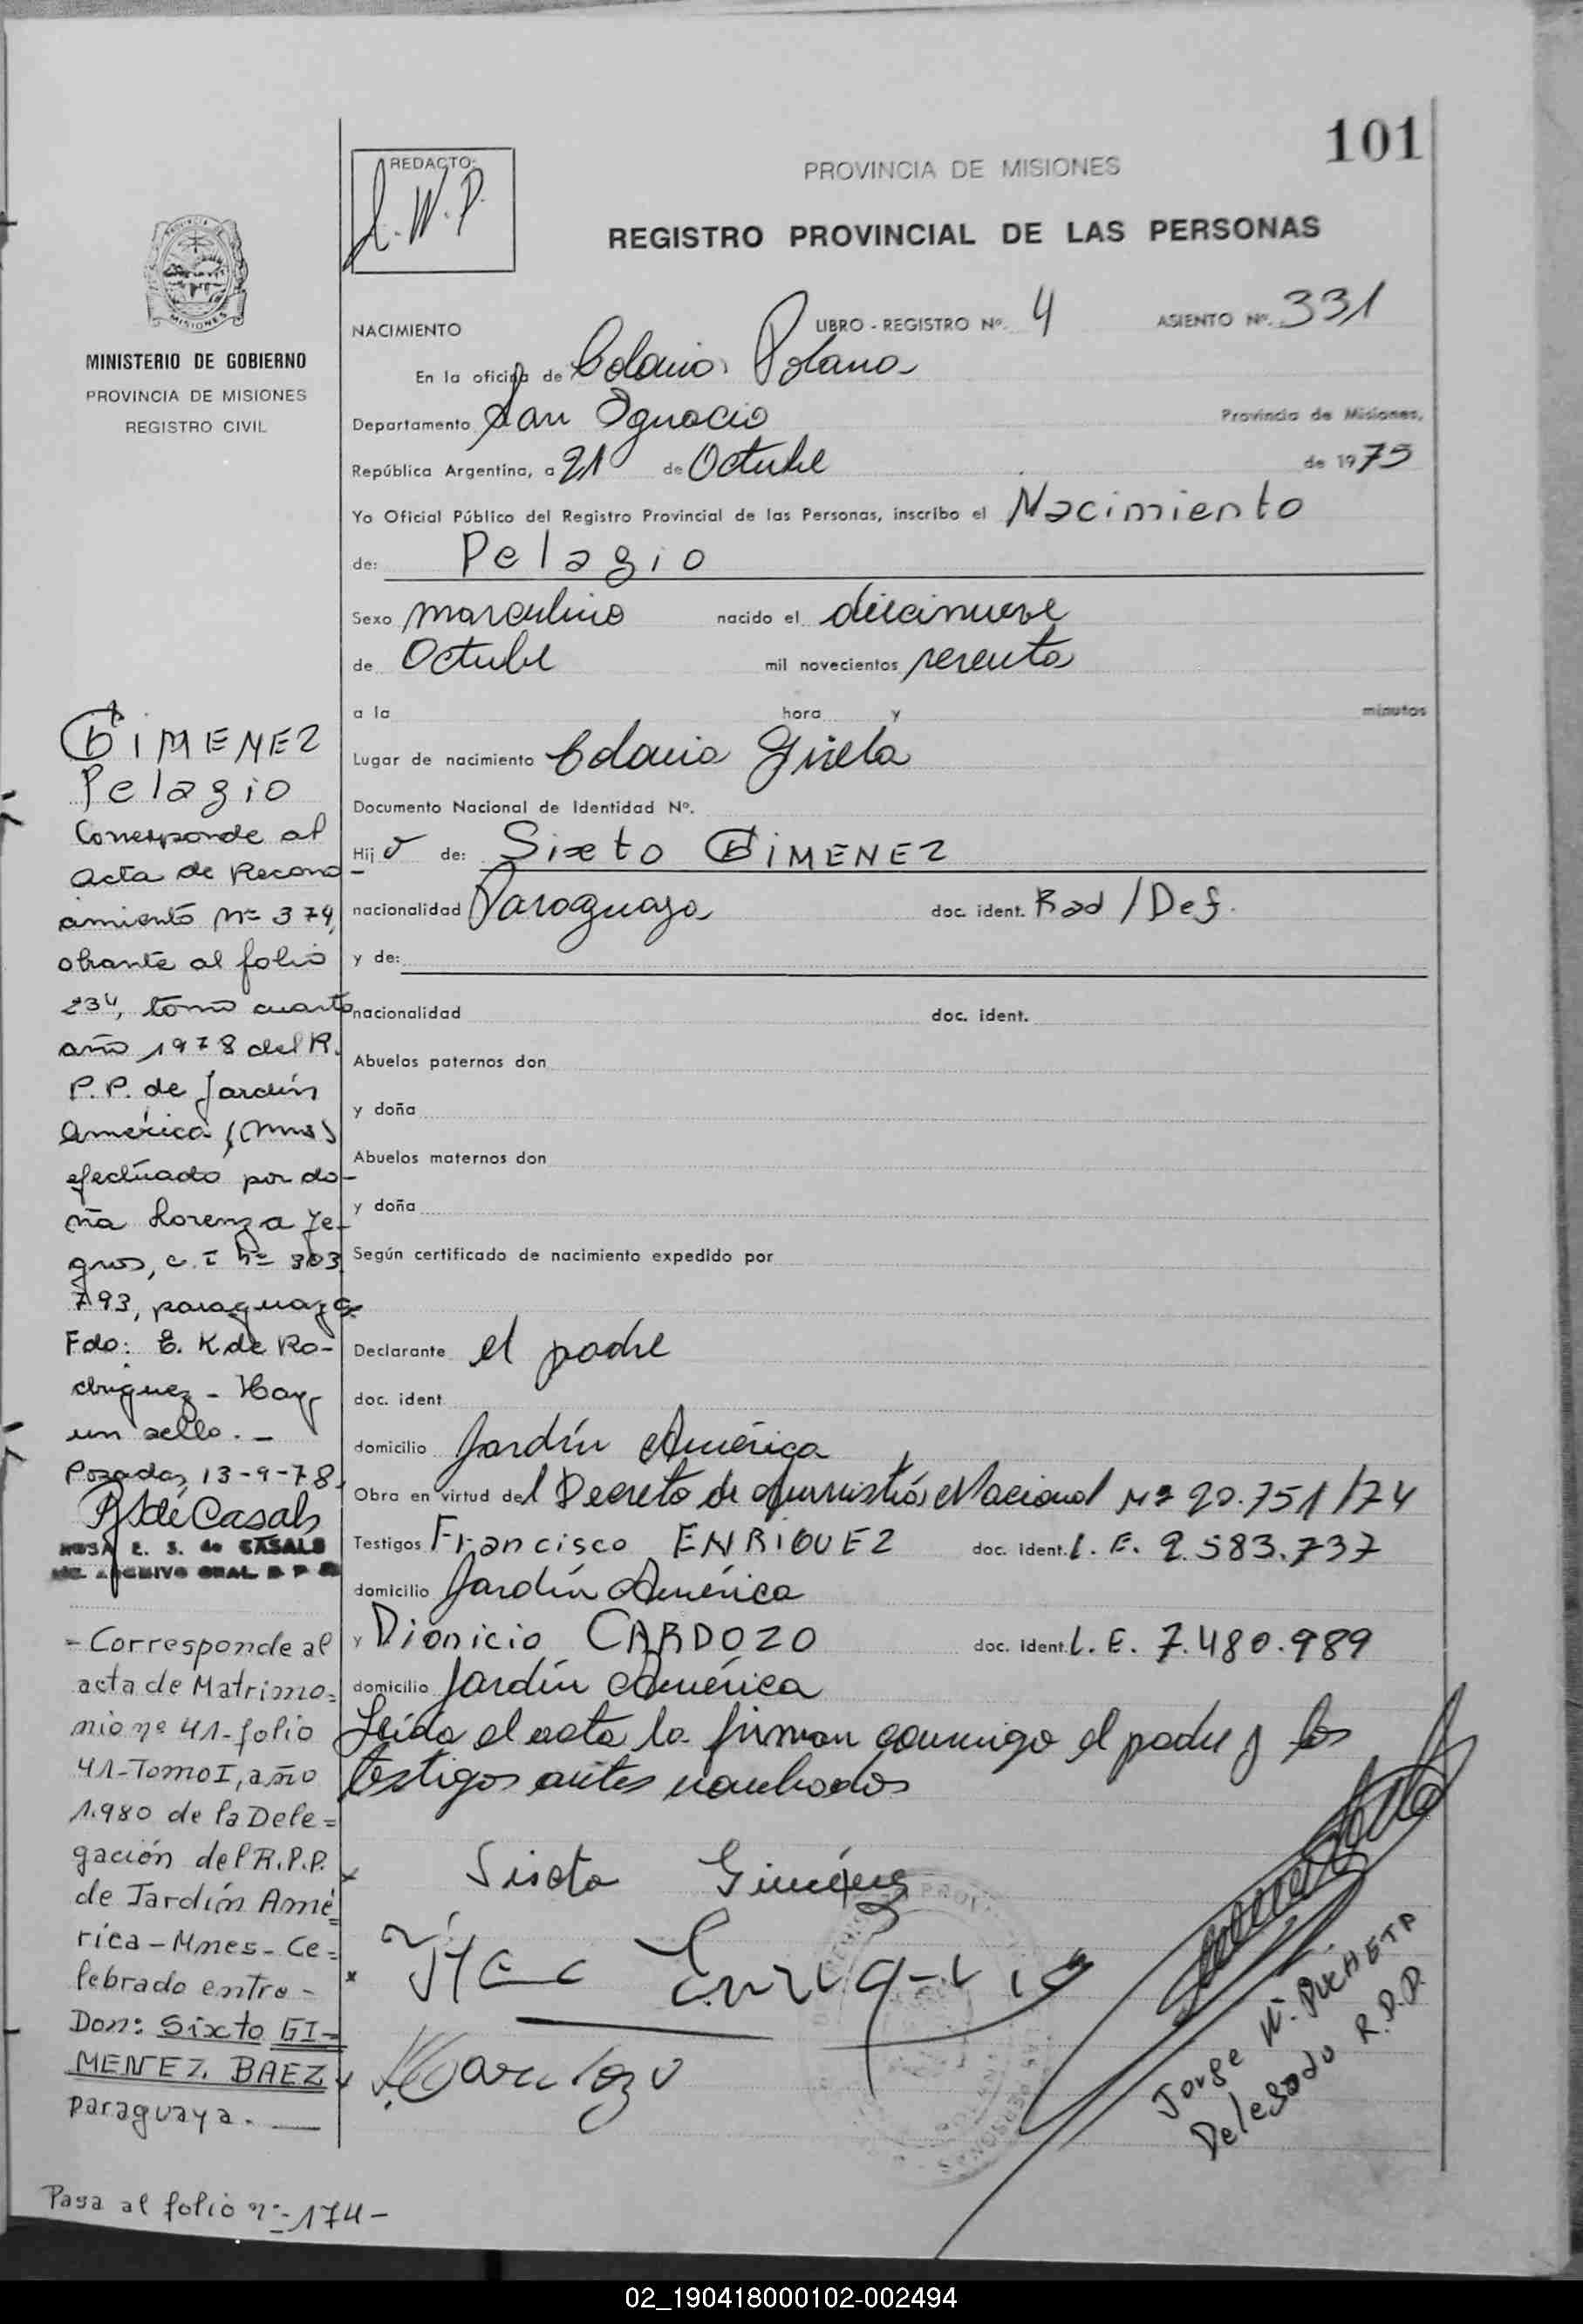 101
REDACTO:
J.W.P.
PROVINCIA DE MISIONES
REGISTRO PROVINCIAL DE LAS PERSONAS
MISIONES
MINISTERIO DE GOBIERNO
PROVINCIA DE MISIONES
REGISTRO CIVIL
NACIMIENTO LIBRO - REGISTRO Nº. 4 ASIENTO Nº. 331
En la oficina de Colonia Polana
Departamento San Ignacio Provincia de Misiones,
República Argentina, a 21 de Octubre de 1975
Yo Oficial Público del Registro Provincial de las Personas, inscribo el Nacimiento
de: Pelagio
Sexo masculino nacido el diecinueve
de Octubre mil novecientos sesenta
a la hora y minutos
Lugar de nacimiento Colonia Gisela
Documento Nacional de Identidad Nº.
Hijo de: Sixto GIMENEZ
nacionalidad Paraguaya doc. ident. Rad/Def.
y de:
nacionalidad doc. ident.
Abuelos paternos don
y doña
Abuelos maternos don
y doña
Según certificado de nacimiento expedido por
Declarante el padre
doc. ident
domicilio Jardín América
Obra en virtud del Decreto de Amnistía Nacional Nº 20.751/74
Testigos Francisco ENRIQUEZ doc. ident. L.E. 2.583.737
domicilio Jardín América
y Dionicio CARDOZO doc. ident. L.E. 7.480.989
domicilio Jardín América
Leída el acta la firman conmigo el padre y los
testigos antes nombrados
Sixto Giménez
Cardozo
Jorge W. PUCHETA
Delegado R.P.P.
GIMENEZ
Pelagio
Corresponde al
acta de Recono
cimiento Nº 374,
obrante al folio
234, tomo cuarto
año 1978 del R.
P.P. de Jardín
América (Mnes)
efectuado por do-
ña Lorenza Ye-
gros, c.i Nº 303
793, paraguaya
Fdo: E. K de Ro-
driguez - Hay
un sello. -
Posadas, 13-9-78,
R S de Casals
ROSA E. S. de CASALS
- Corresponde al
acta de Matrimo=
nio nº 41-folio
41-Tomo I, año
1.980 de la Dele=
gación del R.P.P.
de Jardín Amé=
rica - Mnes - Ce=
lebrado entre -
Don: Sixto GI=
MENEZ BAEZ
paraguaya. —
Pasa al folio nº- 174-
02_190418000102-002494